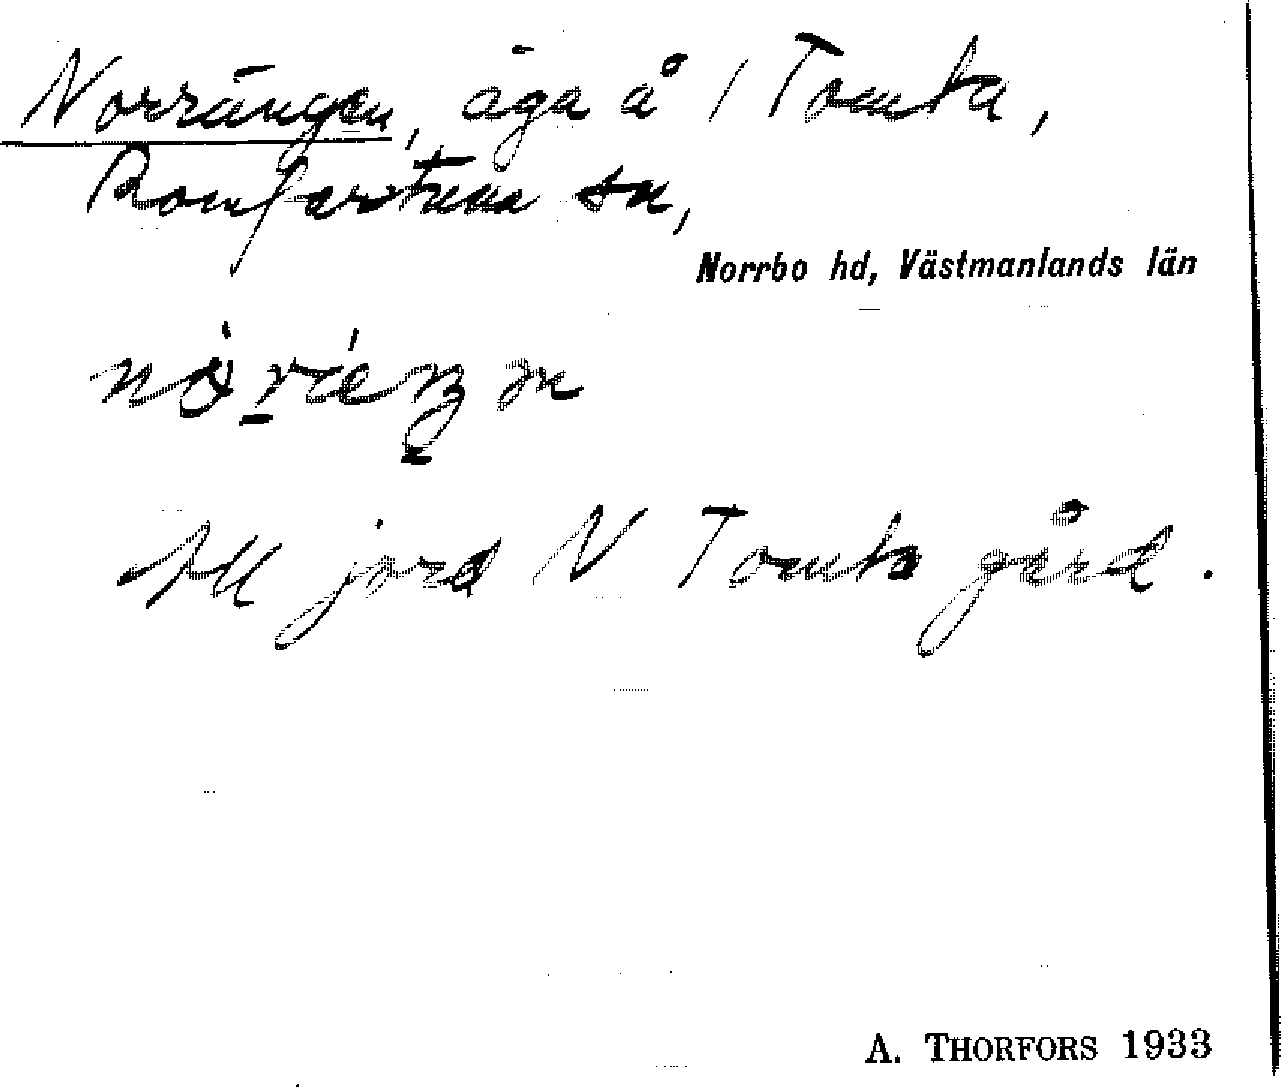 Norrängen, äga å 1 Tomta,
Romfartuna sn,
Norrbo hd, Västmanlands län
All jord N Tomta gård.
A. THORFORS 1933